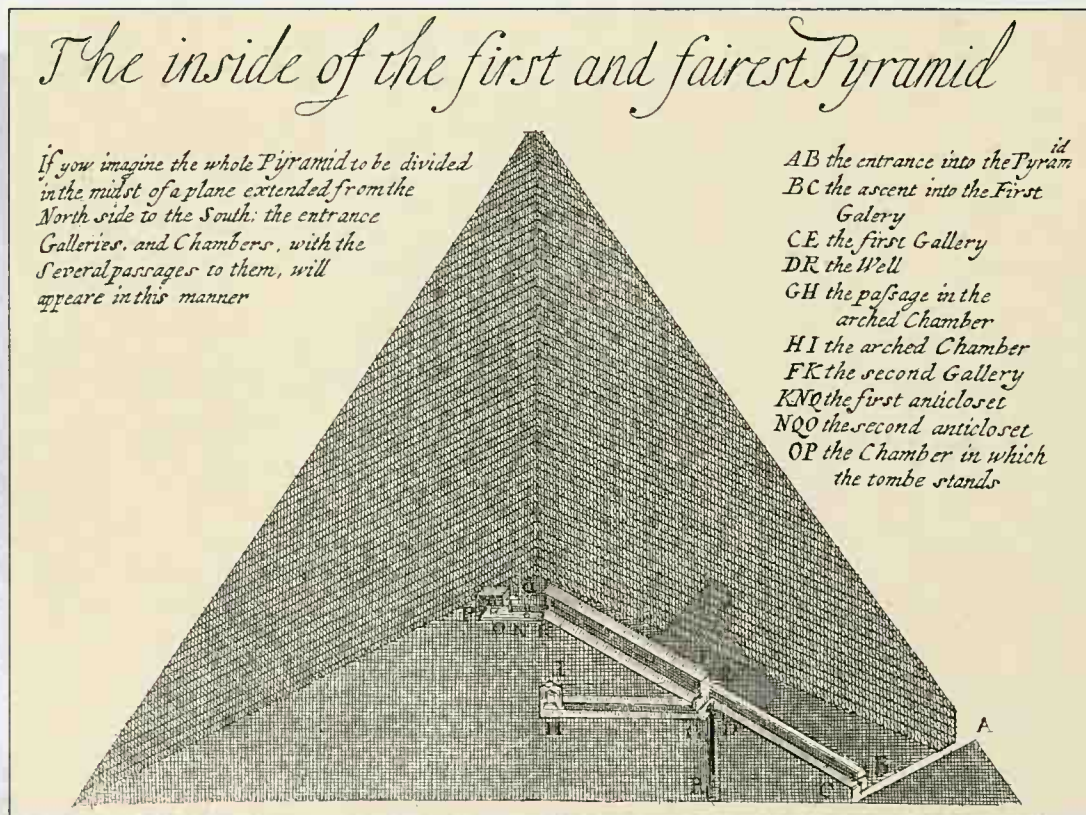 The inside of the first and fairest Pyramid
If yow imagine the whole Pyramid to be divided
in the midst of a plane extended from the
North side to the South: the entrance
Galleries, and Chambers, with the
Several passages to them, will
appeare in this manner
AB the entrance into the Pyramid
BC the ascent into the First
Galery
CE the first Gallery
DR the Well
GH the paſsage in the
arched Chamber
HI the arched Chamber
FK the second Gallery
KNQ the first anticloset
NQO the second anticloset
OP the Chamber in which
the tombe stands
P
O N
I
H
D
R
A
B
C